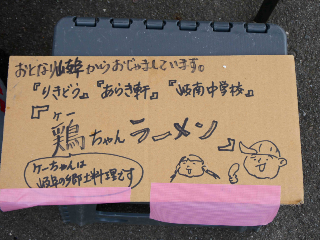 おとなり岐阜からおじゃましています。
『りきどう』『あらき軒』『岐南中学校』
『鶏ちゃんラーメン』
ケー
ケーちゃんは
岐阜の郷土料理です